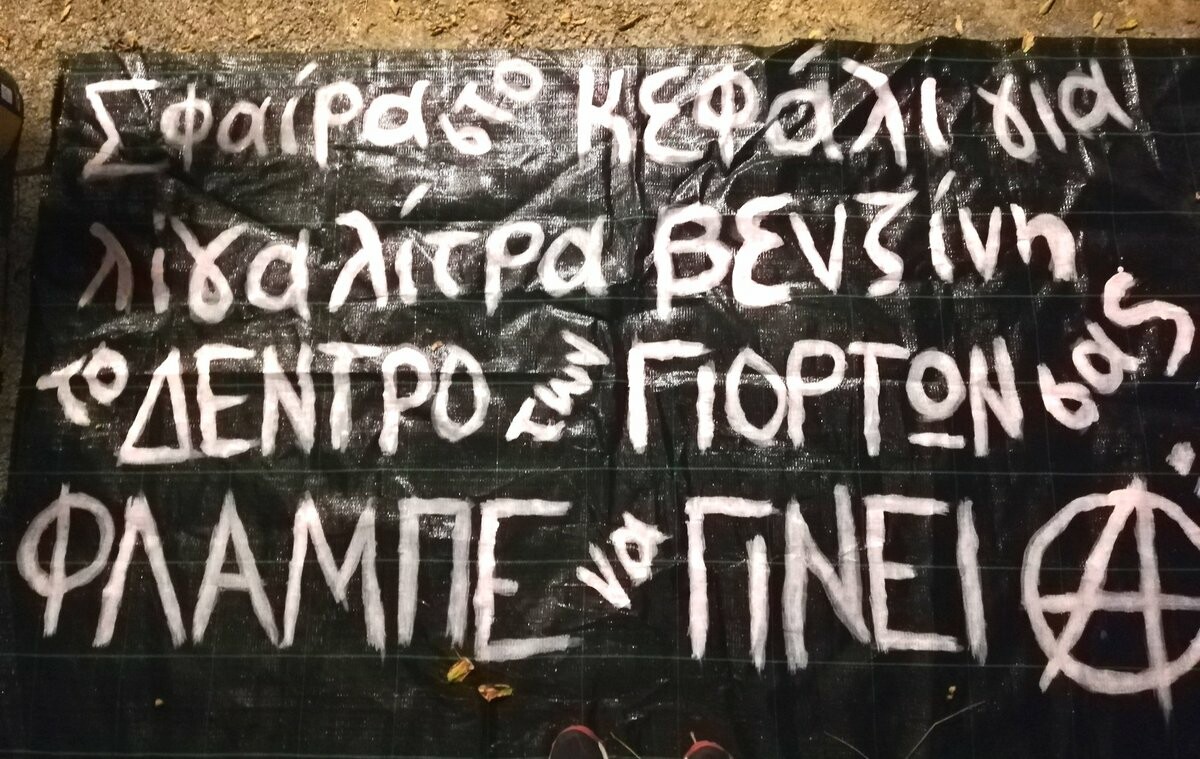 Σφαίρα στο κεφάλι για
λίγα λίτρα βενζίνη
το ΔΕΝΤΡΟ των ΓΙΟΡΤΩΝ σας
ΦΛΑΜΠΕ να ΓΙΝΕΙ Ⓐ